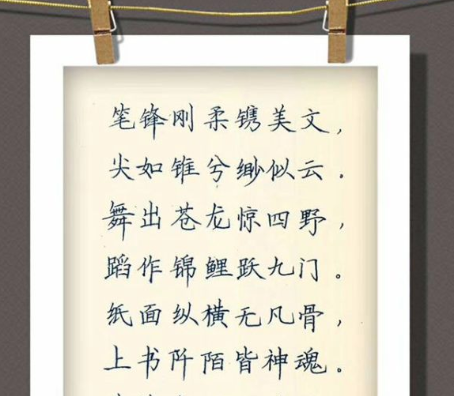 笔锋刚柔镌美文，
尖如锥兮缈似云．
舞出苍龙惊四野，
蹈作锦鲤跃九门。
纸面纵横无凡骨，
上书阡陌皆神魂。